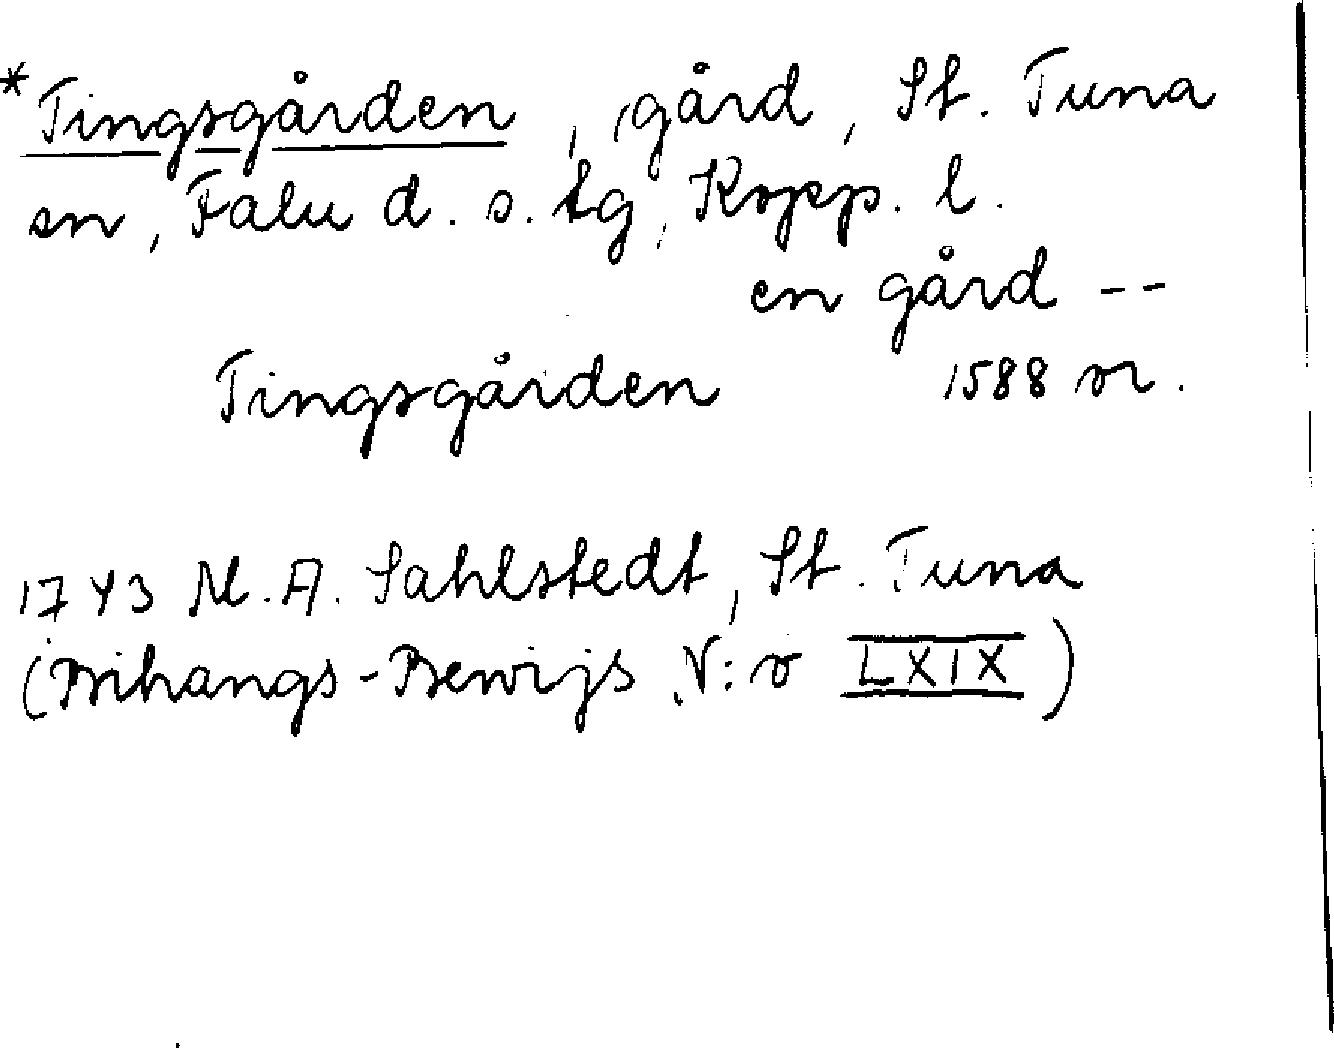 *Tingsgården, gård, St. Tuna
sn, Falu d. s. tg, Kopp. l.
en gård --
Tingsgården 1588 or.
1743 M. A. Sahlstedt, St. Tuna
(Bihangs-Bewijs N:o LXIX)